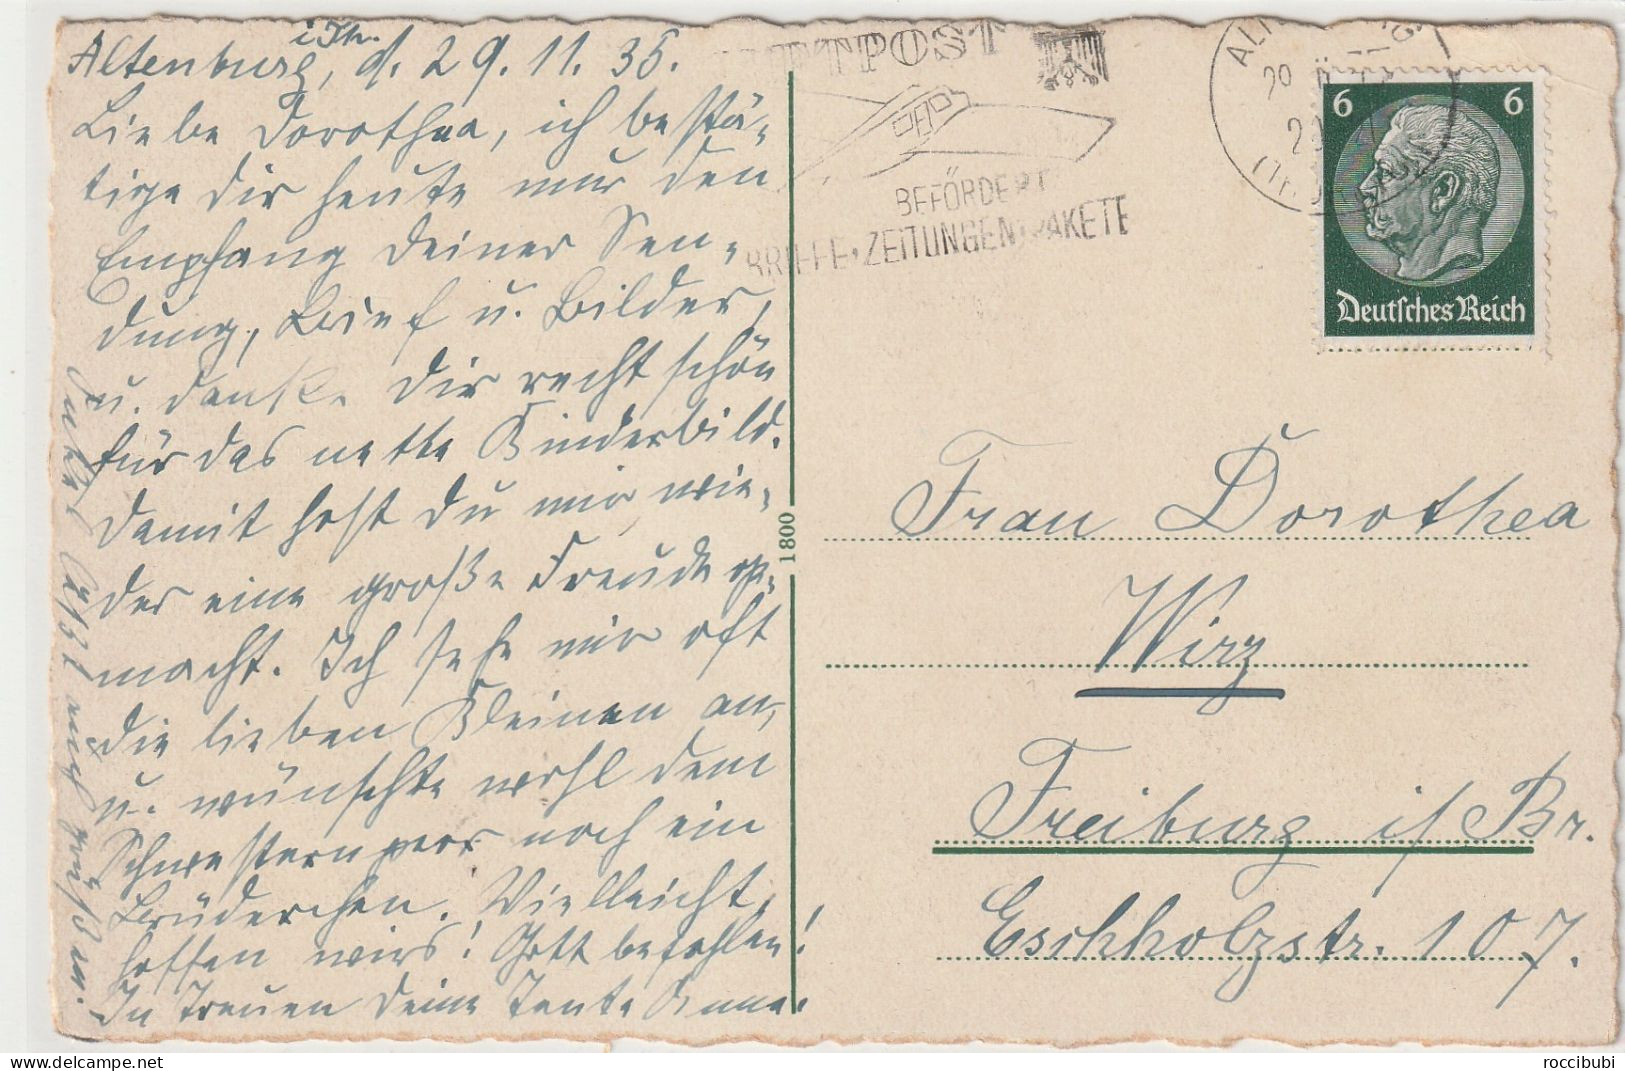 Altenburg, i Th. d. 29. 11. 35.
Liebe Dorothea, ich bestä-
tige Dir heute nur den
Empfang Deiner Sen-
dung, Brief u. Bilder,
u. danke Dir recht schön
für das nette Kinderbild.
Damit hast Du mir wie-
der eine große Freude ge-
macht. Ich sehe mir oft
die lieben Kleinen an,
u. wünschte wohl dem
Schwesternpaar noch ein
Brüderchen. Vielleicht,
hoffen wirs! Gott befohlen!
In Treuen Deine Tante Anna.
Onkel läßt auch grüßen.
1800
LUFTPOST
BEFÖRDERT
BRIEFE, ZEITUNGEN, PAKETE
ALTENBURG
29
6 6
Deutsches Reich
Frau Dorothea
Wirz
Freiburg i/ Br.
Eschholzstr. 107.
delcampe.net
roccibubi